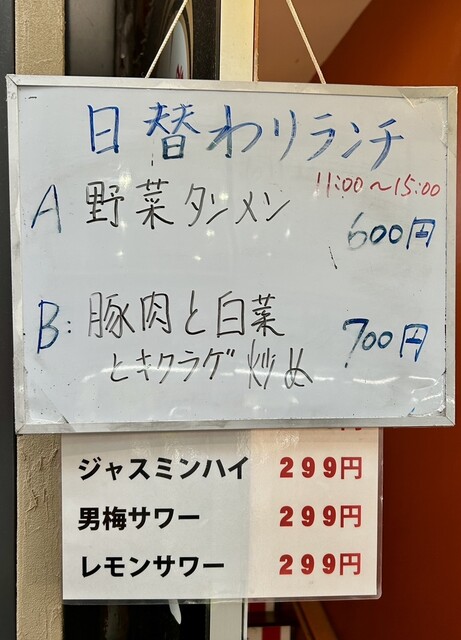 日替わりランチ
11:00~15:00
A 野菜タンメン 600円
B: 豚肉と白菜
とキクラゲ炒め 700円
ジャスミンハイ 299円
男梅サワー 299円
レモンサワー 299円